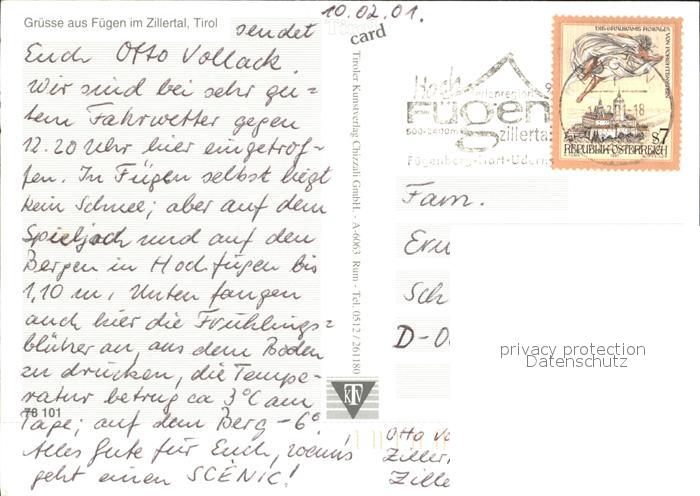 Grüsse aus Fügen im Zillertal, Tirol
10.02.01.
sendet
Euch Otto Vollack.
Wir sind bei sehr gu=
tem Fahrwetter gegen
12.20 Uhr hier eingetrof=
fen. In Fügen selbst liegt
kein Schnee; aber auf dem
Spieljoch und auf den
Bergen in Hochfügen bis
1,10 m, Unten fangen
auch hier die Frühlings=
blüher an, aus dem Boden
zu drücken, die Tempe-
ratur betrug ca 3°C am
78 101
Tage; auf dem Berg -6°
Alles Gute für Euch, wenn's
geht einen SCÈNIC!
card
Tiroler Kunstverlag Chizzali GmbH. - A-6063 Rum - Tel. 0512/261180
KTV
Hoch
Fügen
Zillertal
Fügenberg-Hart-Uderns
S7
REPUBLIK ÖSTERREICH
Fam.
Sch
D-0
privacy protection
Datenschutz
Otto Vo
Ziller
Ziller